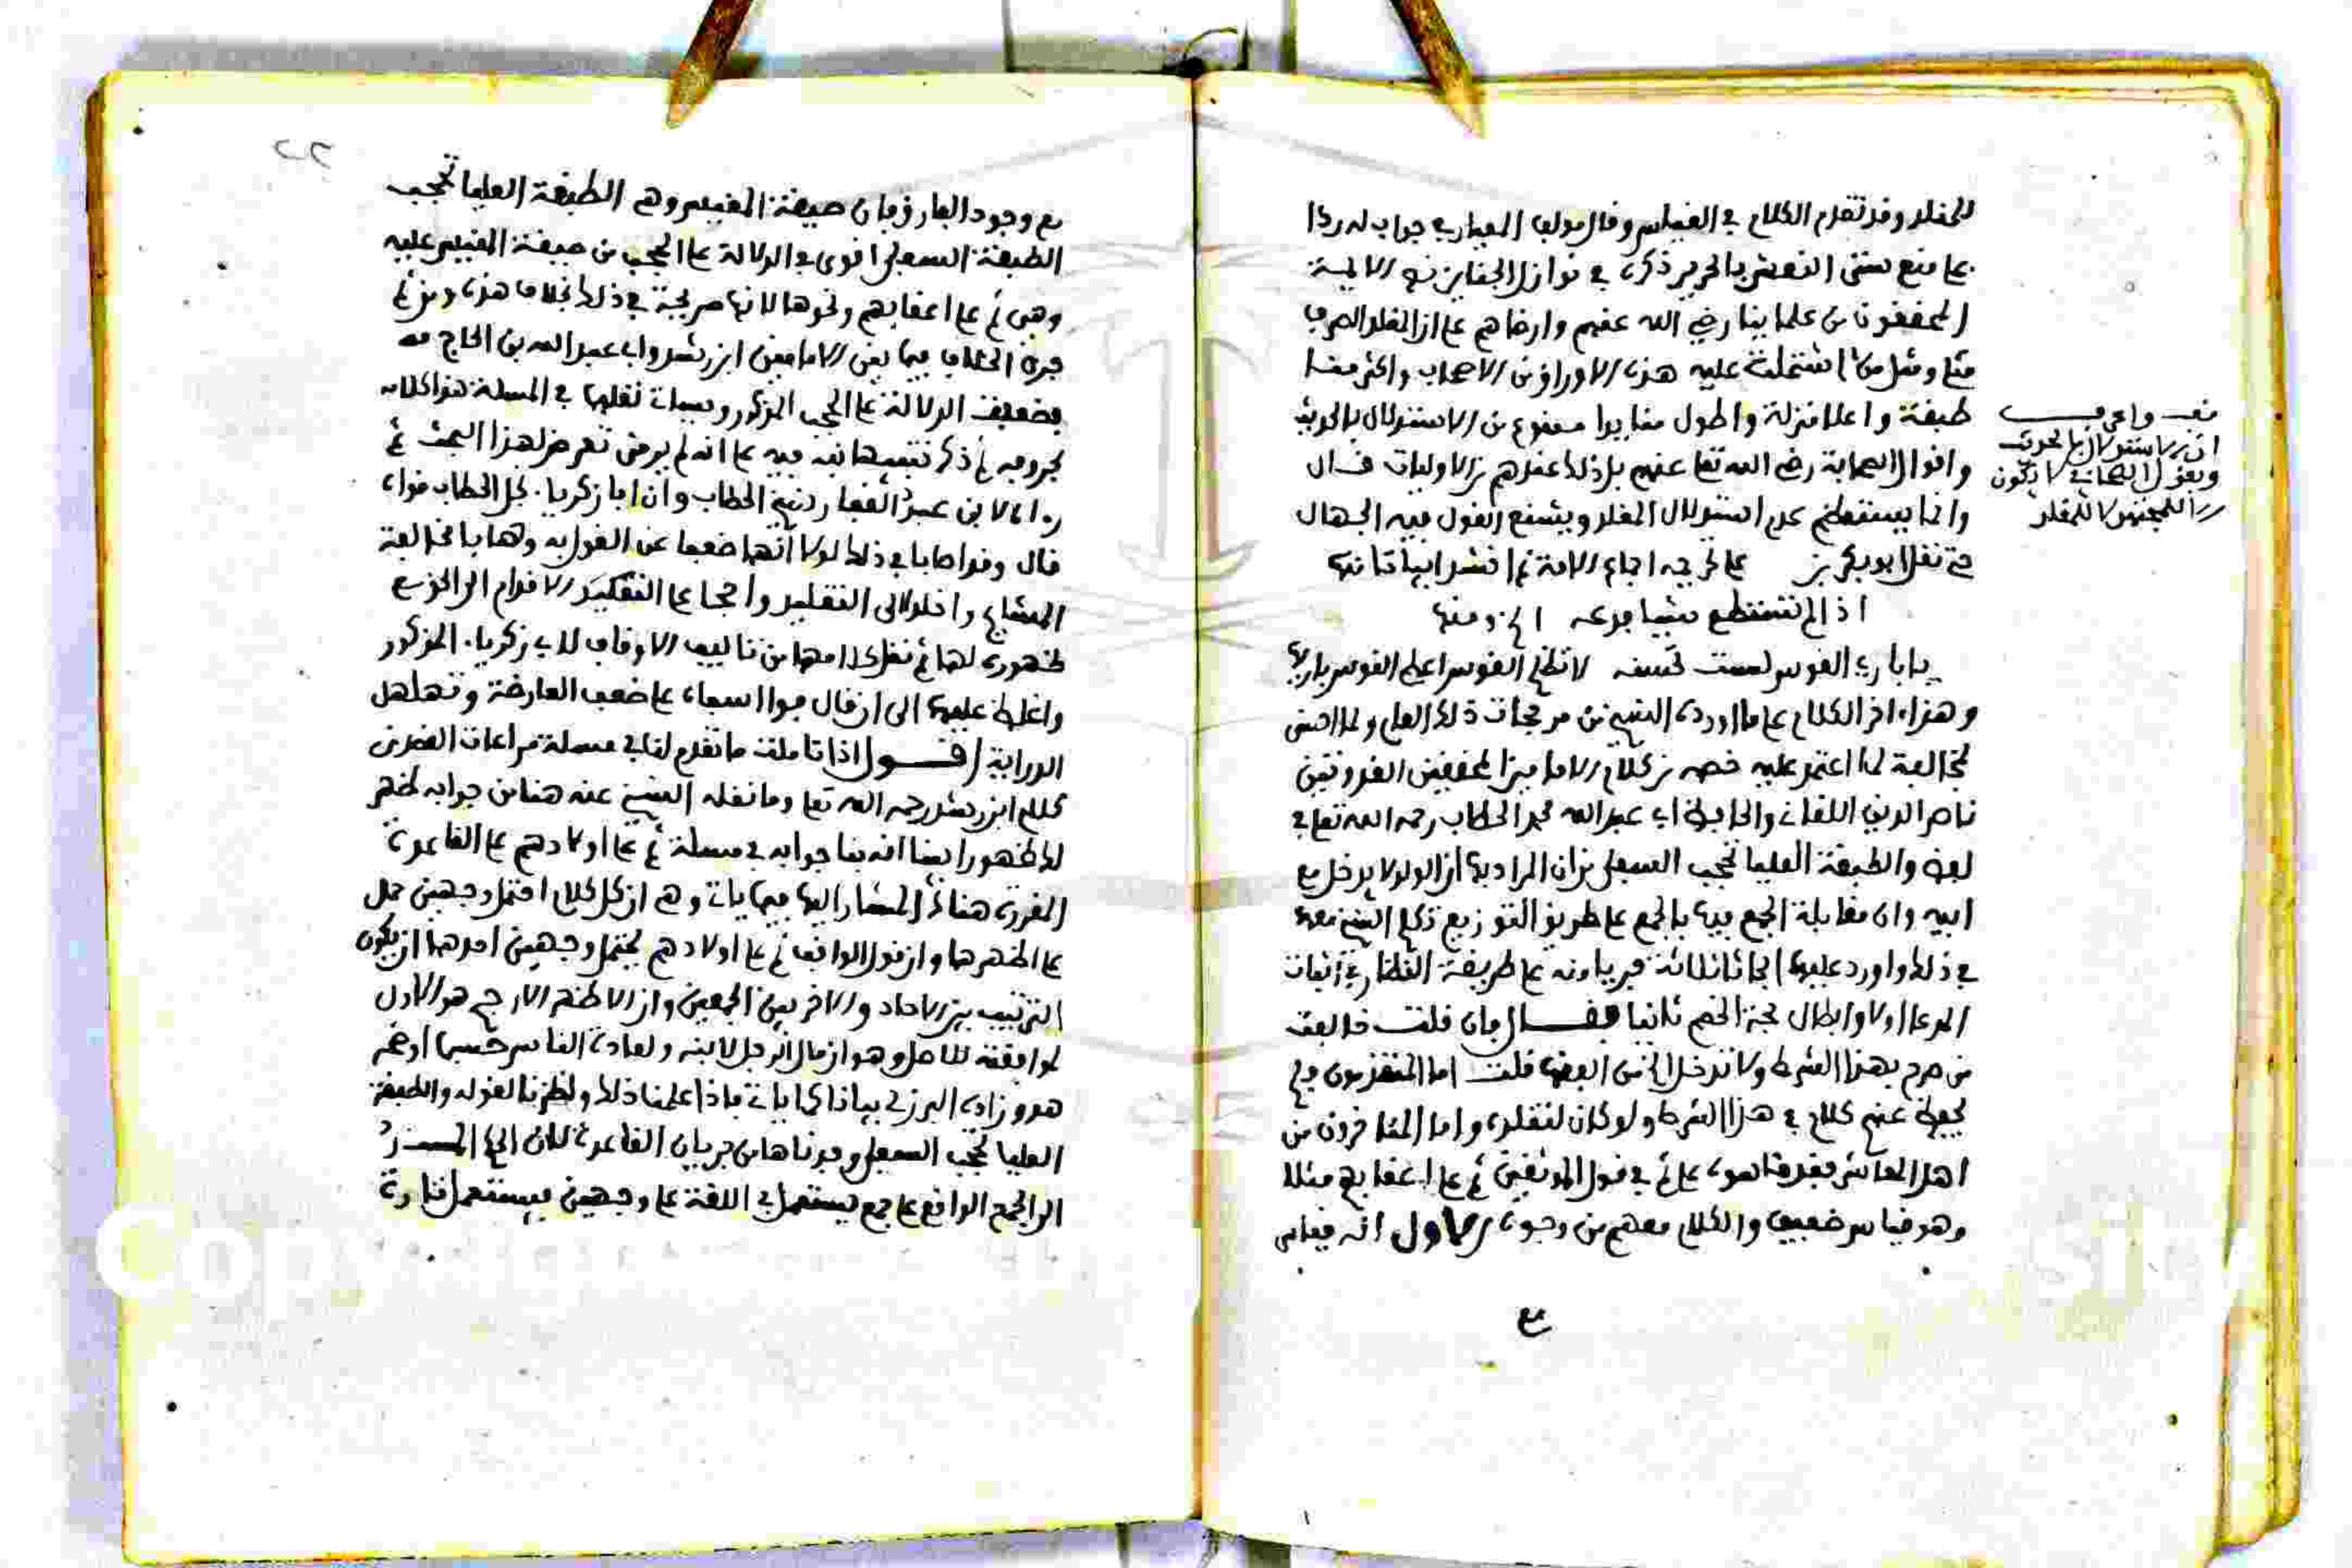 للمقلد وقد تقدم الكلام في القياس وقال مولف المعيار في جواب له ردا
على منع ستر النعش بالحرير ذكره في نوازل الجنايز نص الايمة
المحققون من علماينا رضي الله عنهم وارضاهم على ان المقلد الصرف
مثلي ومثل من اشتملت عليه هذه الاوراق من الاصحاب واكثر منا
طبقة واعلا منزلة واطول منا يدا ممنوع من الاستدلال بالحديث
واقوال الصحابة رضي الله تعلى عنهم بل ذلك عندهم من الاوليات قال
وانما يستعظم عدم استدلال المقلد ويشنع القول فيه الجهال
حتى نقل ابو بكر بن على تحريمه اجماع الامة ثم انشد ابياتا منها
اذا لم تستطع شيئا فدعه الخ ومنها
يا باري القوس لست تحسنه لا تظلم القوس اعط القوس باريها
وهذا اخر الكلام على ما اورده الشيخ من مرجحات ذلك العلم ولما احس
مخالفة لما اعتمد عليه خصمه من كلام الامامين المحققين القدوتين
ناصر الدين اللقاني والحافظ ابي عبد الله محمد الحطاب رحمه الله تعلى في
لفظ والطبقة العليا تحجب السفلى من ان المراد بها ان الولد لا يدخل مع
ابيه وان مقابلة الجمع فيها بالجمع على طريق التوزيع ذكر الشيخ معهم
في ذلك واورد عليهم ابحاثا ثلاثة جريا منه على طريقة النظار في اثبات
المدعا اولا وابطال حجة الخصم ثانيا فقال فان قلت خالفت
من صرح بهذا الشرط ولا تدخل قلت اما المتقدمون فلم
يحفظ عنهم كلام في هذا الشرط ولو كان لنقلوه واما المتاخرون من
اهل العاشر فقد قاسوه على ثم في قول الموثقين ثم على اعقابهم مثلا
وهو قياس ضعيف والكلام معهم من وجوه الاول انه قياس
مع
قف واعرف
ان الاستدلال بالحديث
وبقول الصحابي لا يكون
الا للمجتهد لا للمقلد
مع وجود الفارق فان صيغة المقيس وهي الطبقة العليا تحجب
الطبقة السفلى اقوى في الدلالة على الحجب من صيغة المقيس عليه
وهي ثم على اعقابهم ونحوها لانها صريحة في ذلك بخلاف هذه ومن ثم
جرى الخلاف فيها بين الامامين ابن رشد وابي عبد الله بن الحاج
بضعيف الدلالة على الحجب المذكور وسيات نقلها في المسلة هذا كلامه
بحروفه ثم ذكر تنبيها نبه فيه على انه لم يرض تعرض لهذا البحث ثم
رواه لابن عبد الغفار شيخ الحطاب وان ابا زكريا نجل الحطاب قواه
قال وقد اصابا في ذلك لولا انهما ضعفا عن القول به وهابا مخالفة
المشايخ واخلدا الى التقليد واحجما على
ظهوره لهما ثم نقل كلامهما من تاليف الاوقاف لابي زكرياء المذكور
واغلظ عليهما الى ان قال فيوا اسفاه على ضعف العارضة وتهلهل
الدراية اقول اذا تاملت ما تقدم لنا في مسلة مراعات القصد من
كلام ابن رشد رحمه الله تعلى وما نقله الشيخ عنه هنا من جوابه ظهر
لك ظهورا بينا انه بنا جوابه في مسلة ثم على اولادهم على القاعدة
المقررة هنا المشار اليها فيما ياتي وهي ان كل كلام احتمل وجهين حمل
على اظهرهما وان قول الواقف ثم على اولادهم يحتمل وجهين احدهما ان يكون
الترتيب بين الاحاد والاخر بين الجمعين وان الاظهر الارجح هو الاول
لموافقته للاصل وهو ان مال الرجل لابنه ولعادة الناس حسبما اوضحه
هو وزاده البرزلي بيانا كما ياتي فاذا علمنا ذلك ونظرنا لقوله والطبقة
العليا تحجب السفلى وجدناها من جريان القاعدة لان الجمع المسند
الى الجمع الواقع على جمع يستعمل في اللغة على وجهين فيستعمل تارة